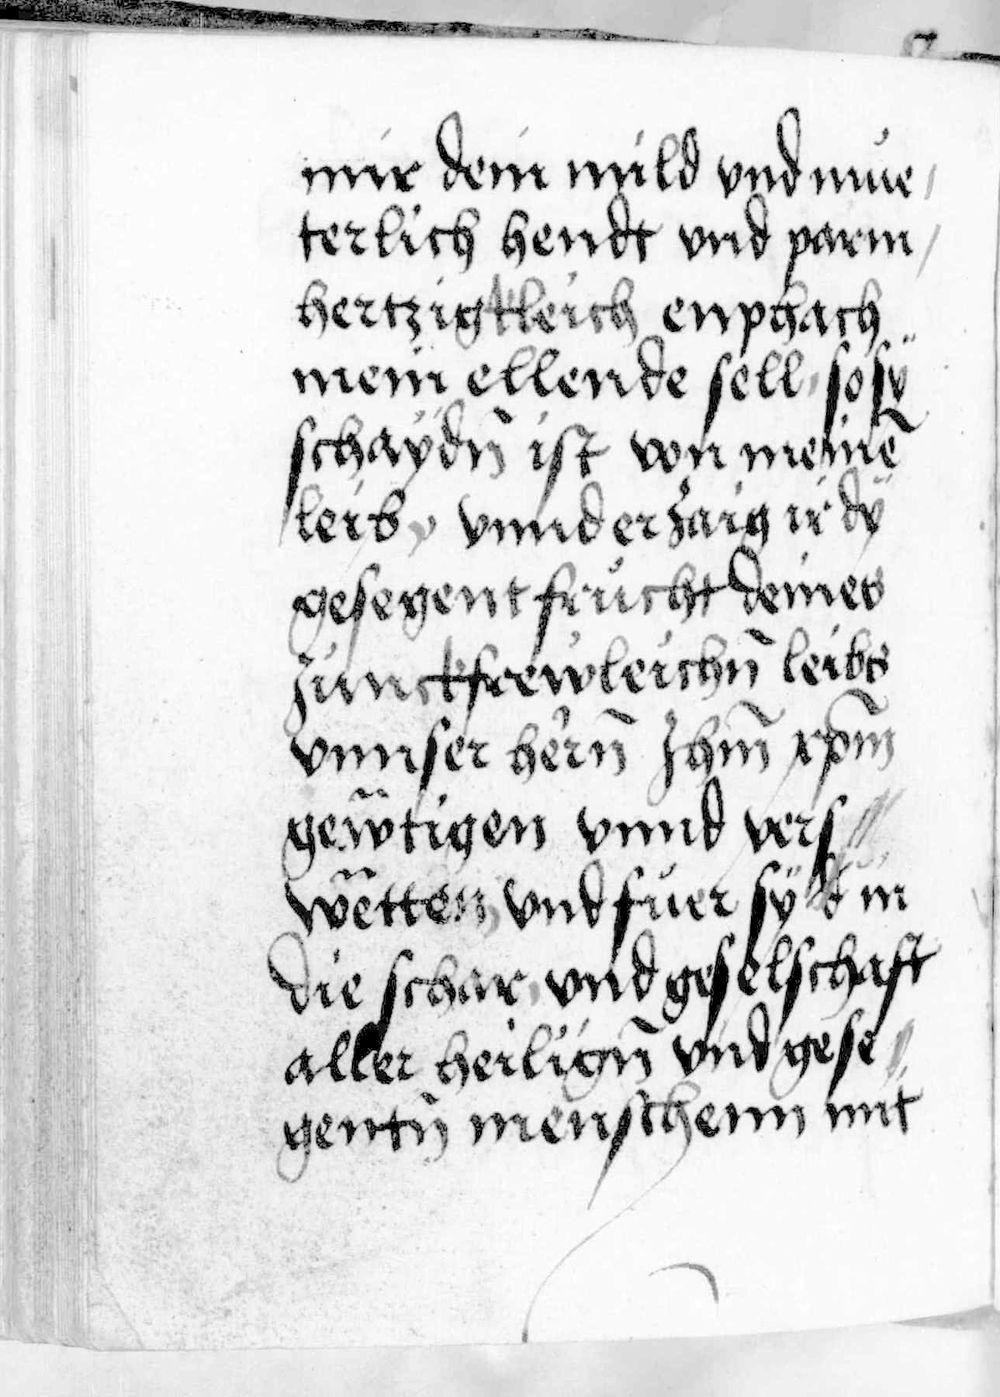 mir dein mild vnd mue/
terlich hendt vnd parm/
hertzigkleich enphach
mein ellende sell, so sÿ
schaÿdn̄ ist von meinē
leib, vnnd erzaig ir dÿ
gesegent frucht deines
Junckfrewleichn̄ leibs
vnnser hern̄ Jhm̄ xpm̄
gewtigen vnnd vers//
wetten, vnd fuer sÿ in
die schar, vnd geselschaft
aller heilign̄ vnd gese//
gentn̄ menschenn mit